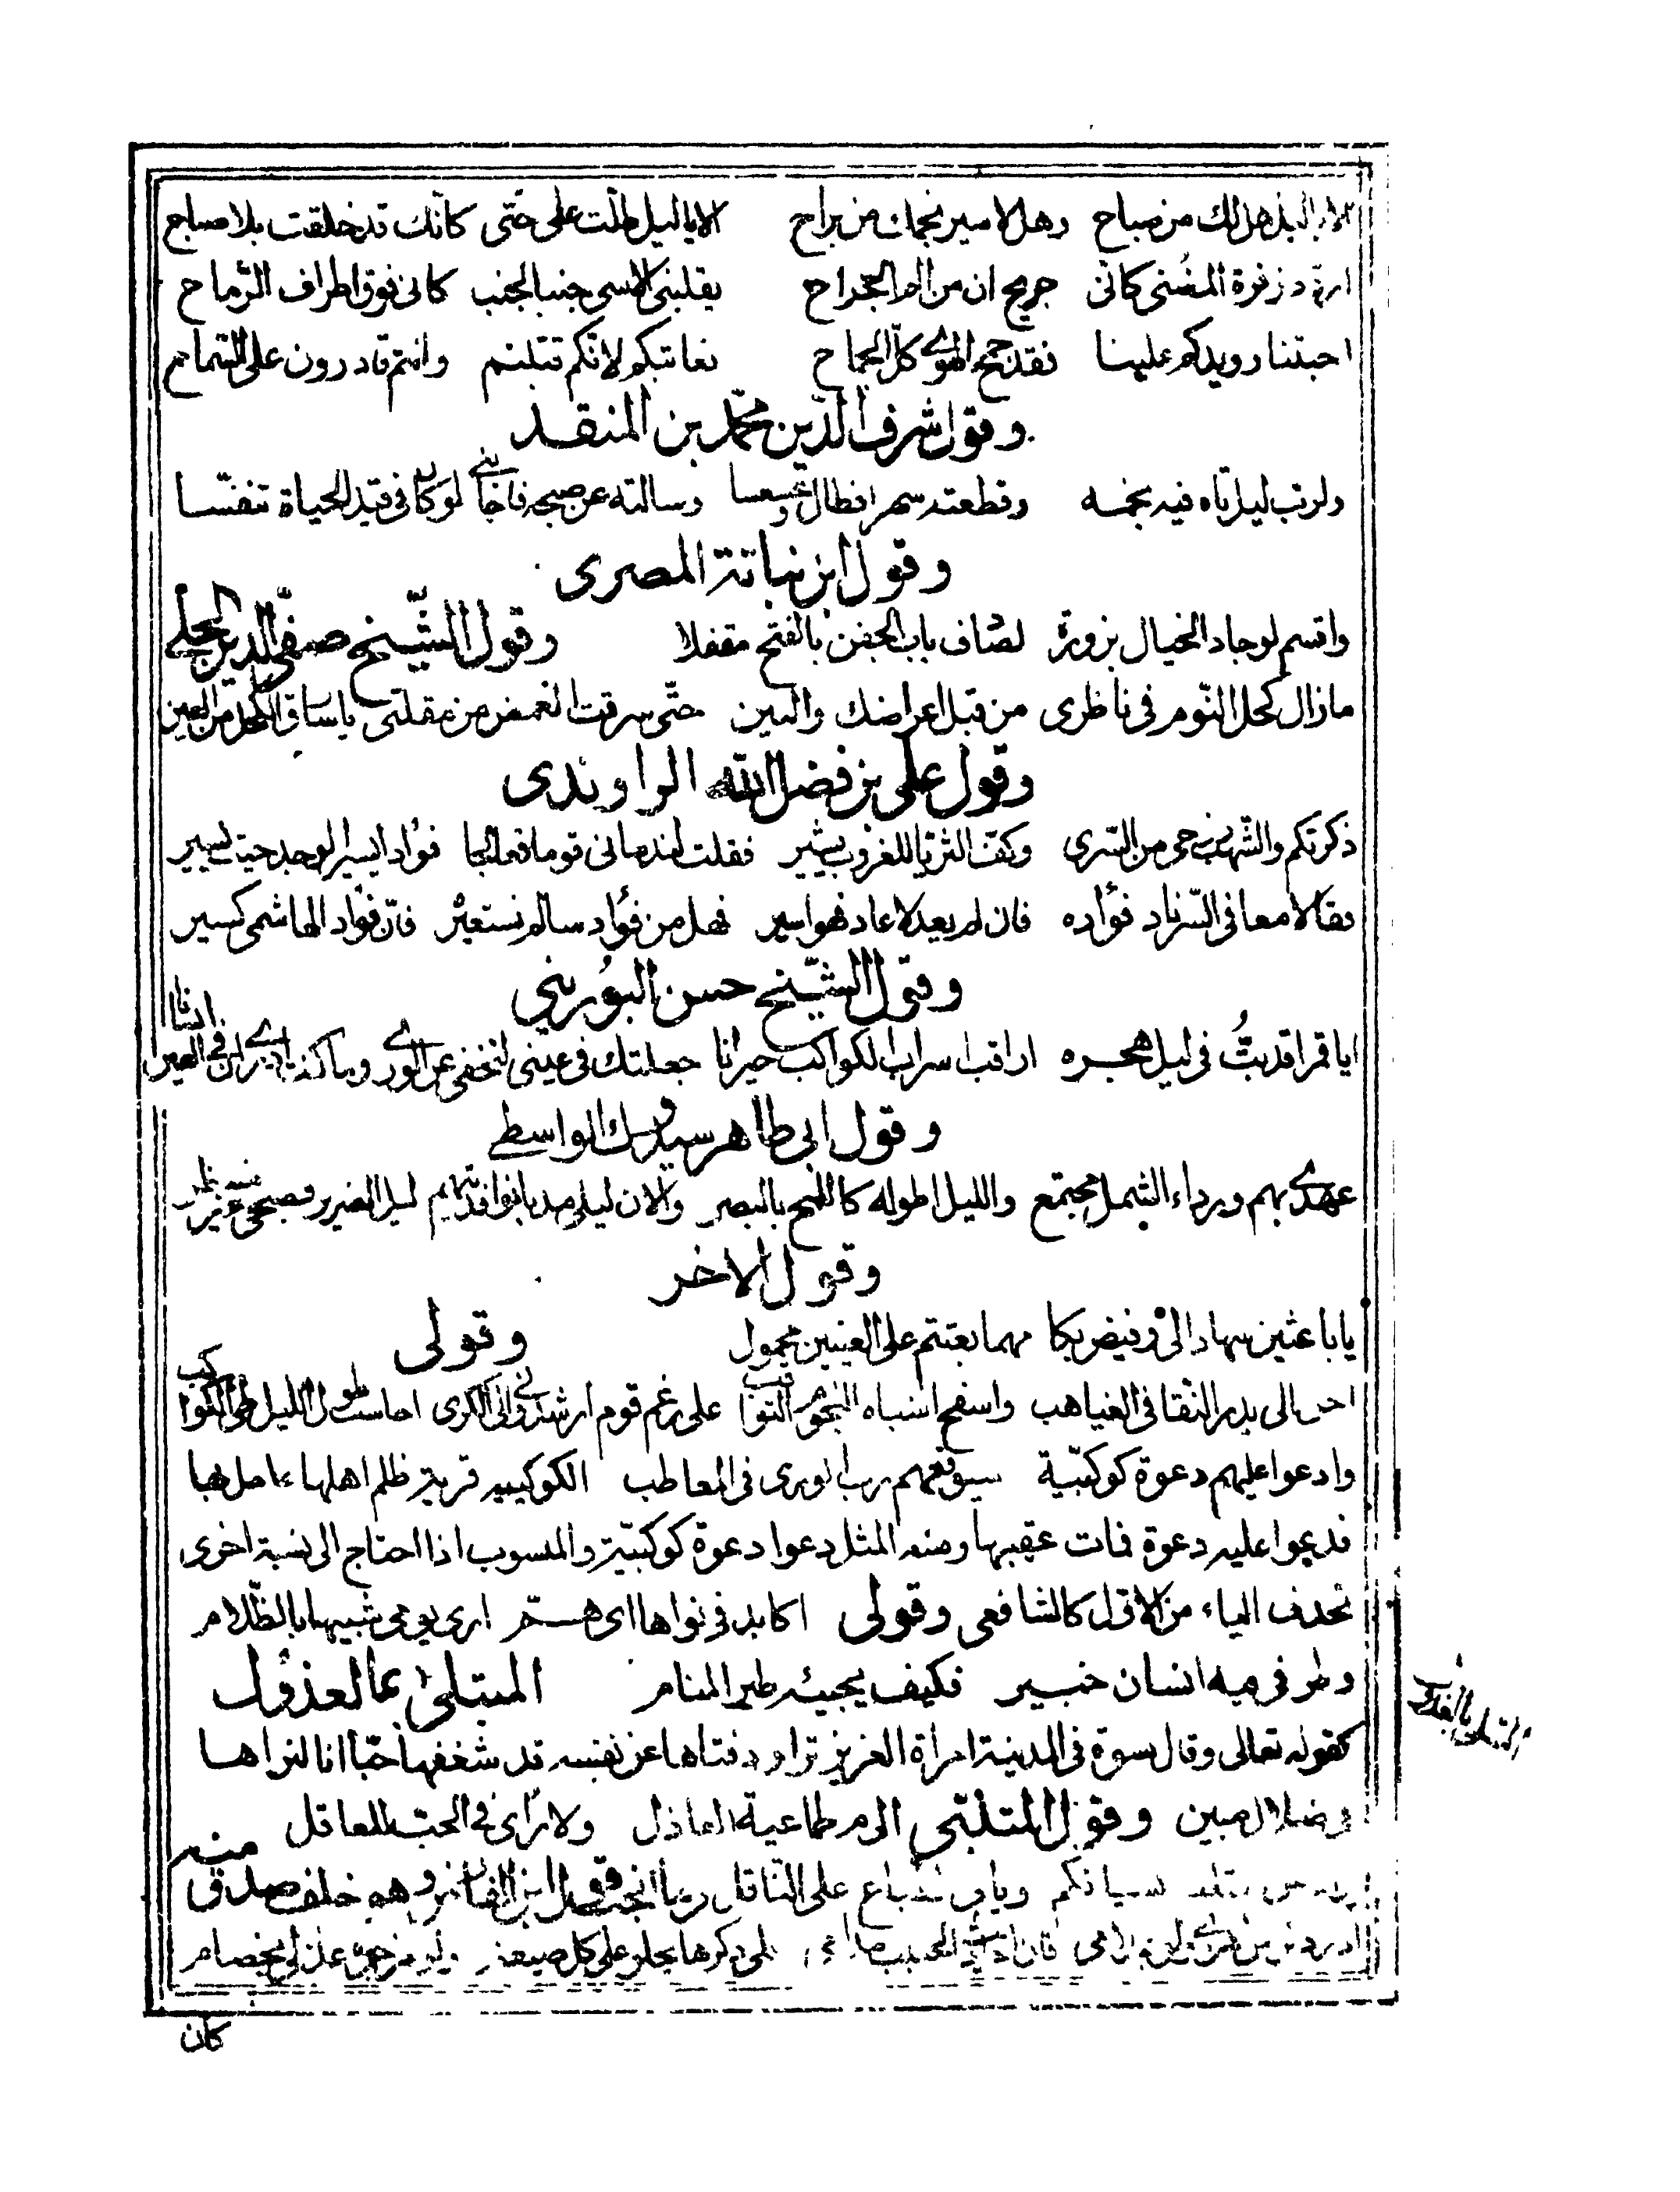 الا يا ليل هل لك من صباح وهل لاسير نجمك من براح الا يا ليل طلت على حتّى كانّك قد خلقت بلا صباح
اردّد زفرة المضنى كانّى جريح ان من الم الجراح يقلبنى الاسى جنبا لجنب كانى فوق اطراف الرّماح
احبتنا رويدكم علينا فقد جمح الهوى كلّ الجماح نعاتبكم لانّكم قتلتم وانتم قادرون على السّماح
وقول شرف الدّين محمّد بن المنقذ
ولربّ ليل تاه فيه نجمه وقطعته سهرا فطال وعسعسا وسالته عن صبحه فاجابنى لو كان فى قيد الحياة تنفّسا
وقول ابن نباتة المصرى
واقسم لو جاد الخيال بزورة لصادف باب الجفن بالفتح مقفلا وقول الشّيخ صفىّ الدين الحلى
مازال كحل النّوم فى ناظرى من قبل اعراضك والبين حتّى سرقت الغمض من مقلتى يا سارق الكحل من العين
وقول على بن فضل اللّه الراوندى
ذكرتكم والشّهب حرى من السّرى وكفّ الثريّا للغروب يشير فقلت لندمانى قوما فعالجا فؤادا يسير الوجد حيث يسير
فقالا معا فى السّر ناد فؤاده فان لم يعد لا عاد فهو اسير فهل من فؤاد سالم نستعيره فانّ فؤاد الهاشمى كسير
وقول الشّيخ حسن البُورينى
ايا قمرا قد بتُّ فى ليل هجره اراقب اسراب الكواكب حيرانا جعلتك فى عينى لتخفى عن الورى وما كنت ادرى ان فى العين انسانا
وقول ابى طاهر سيدوك الواسطى
عهدى بهم ورداء الشمل مجتمع والليل اطوله كاللمح بالبصر والان ليلى مذ بانوا فديتهم ليل الضرير فصبحى غير منتظر
وقول الاخر
يا باعثين سهادا لى وفيض بكا مهما بعثتم على العينين محمول وقولى
احن الى بدر النّقا فى الغياهب واسفح اشباه النجوم الثواقب على رغم قوم ارشدونى الى الكرى احاسب طول الليل طرّا الكواكب
وادعوا عليهم دعوة كوكبّية سيوقعهم ربّ الورى فى المعاطب الكوكبيه قرية ظلم اهلها عامل بها
فدعوا عليه دعوة فمات عقيبها ومنه المثل دعوا دعوة كوكبيّة والمنسوب اذا احتاج الى نسبة اخرى
تحذف الياء من الاوّل كالشافعى وقولى اكابد فى نواها اى هـمّ ارى يومى شبيها بالظّلام
وطرفى فيه انسان خبير فكيف يجيئه طير المنام المبتلى بالعذول
كقوله تعالى وقال نسوة فى المدينة امرأة العزيز تراود فتاها عن نفسه قد شغفها حبّا انا لنراها
فى ضلال مبين وقول المتنبّى الام طماعية العاذل ولا رأى فى الحبّ للعاقل
يراد من القلب نسيانكم ويابى الطباع على الناقل وقول ابن الفارض وهو خلف صدق منه
ادر ذكر من اهوى ولو بملامى فان احاديث الحبيب مدامى فلى ذكرها يحلو على كل صيغة ولو مزجوه عذلى بخصام
كان